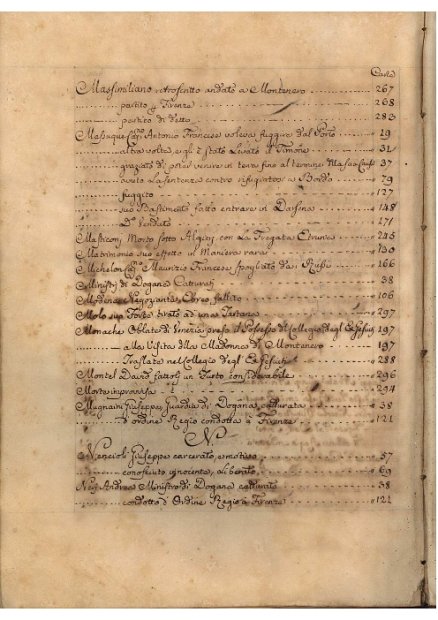 Carte
Massimiliano retroscritto andato a Montenero 267
partito p Firenze 268
partito di detto 283
Mabuque Cap Antonio Francese voleva fuggire dal Porto 19
altra volta, e gli è stato Levato il Timone 32
graziato di poter venire in terra fino al termine 37
avuta la sentenza contro rifugiatosi a Bordo 79
fuggito 127
suo Bastimento fatto entrare in Darsina 148
D° Venduto 171
Masticoni Morto sotto Algieri con La Fregata Etruria 245
Matrimonio suo effetto in Maniera rara 130
Michelon Cap Maurizio Francese spogliato da Russi 166
Ministri di Dogana Catturati 38
Modena Negoziante Ebreo fallito 106
Molo sua Testa urtato ad una Tartana 297
Monache Oblate di Venezia preso il Possesso del Collegio degl Ex Gesuiti 197
alla Visita della Madonna di Montenero 197
Traslate nel Collegio degl Ex Gesuiti 288
Montel David fattoli un Furto considerabile 296
Morte improvisa 294
Mugnaini Giuseppe Guardia di Dogana catturata 38
d'ordine Regio condotta a Firenze 121
N
Nencioli Giuseppe carcerato, e motivo 57
conosciuto innocente, e liberato 69
Neri Andrea Ministro di Dogana catturato 38
condotto d'Ordine Regio a Firenze 121